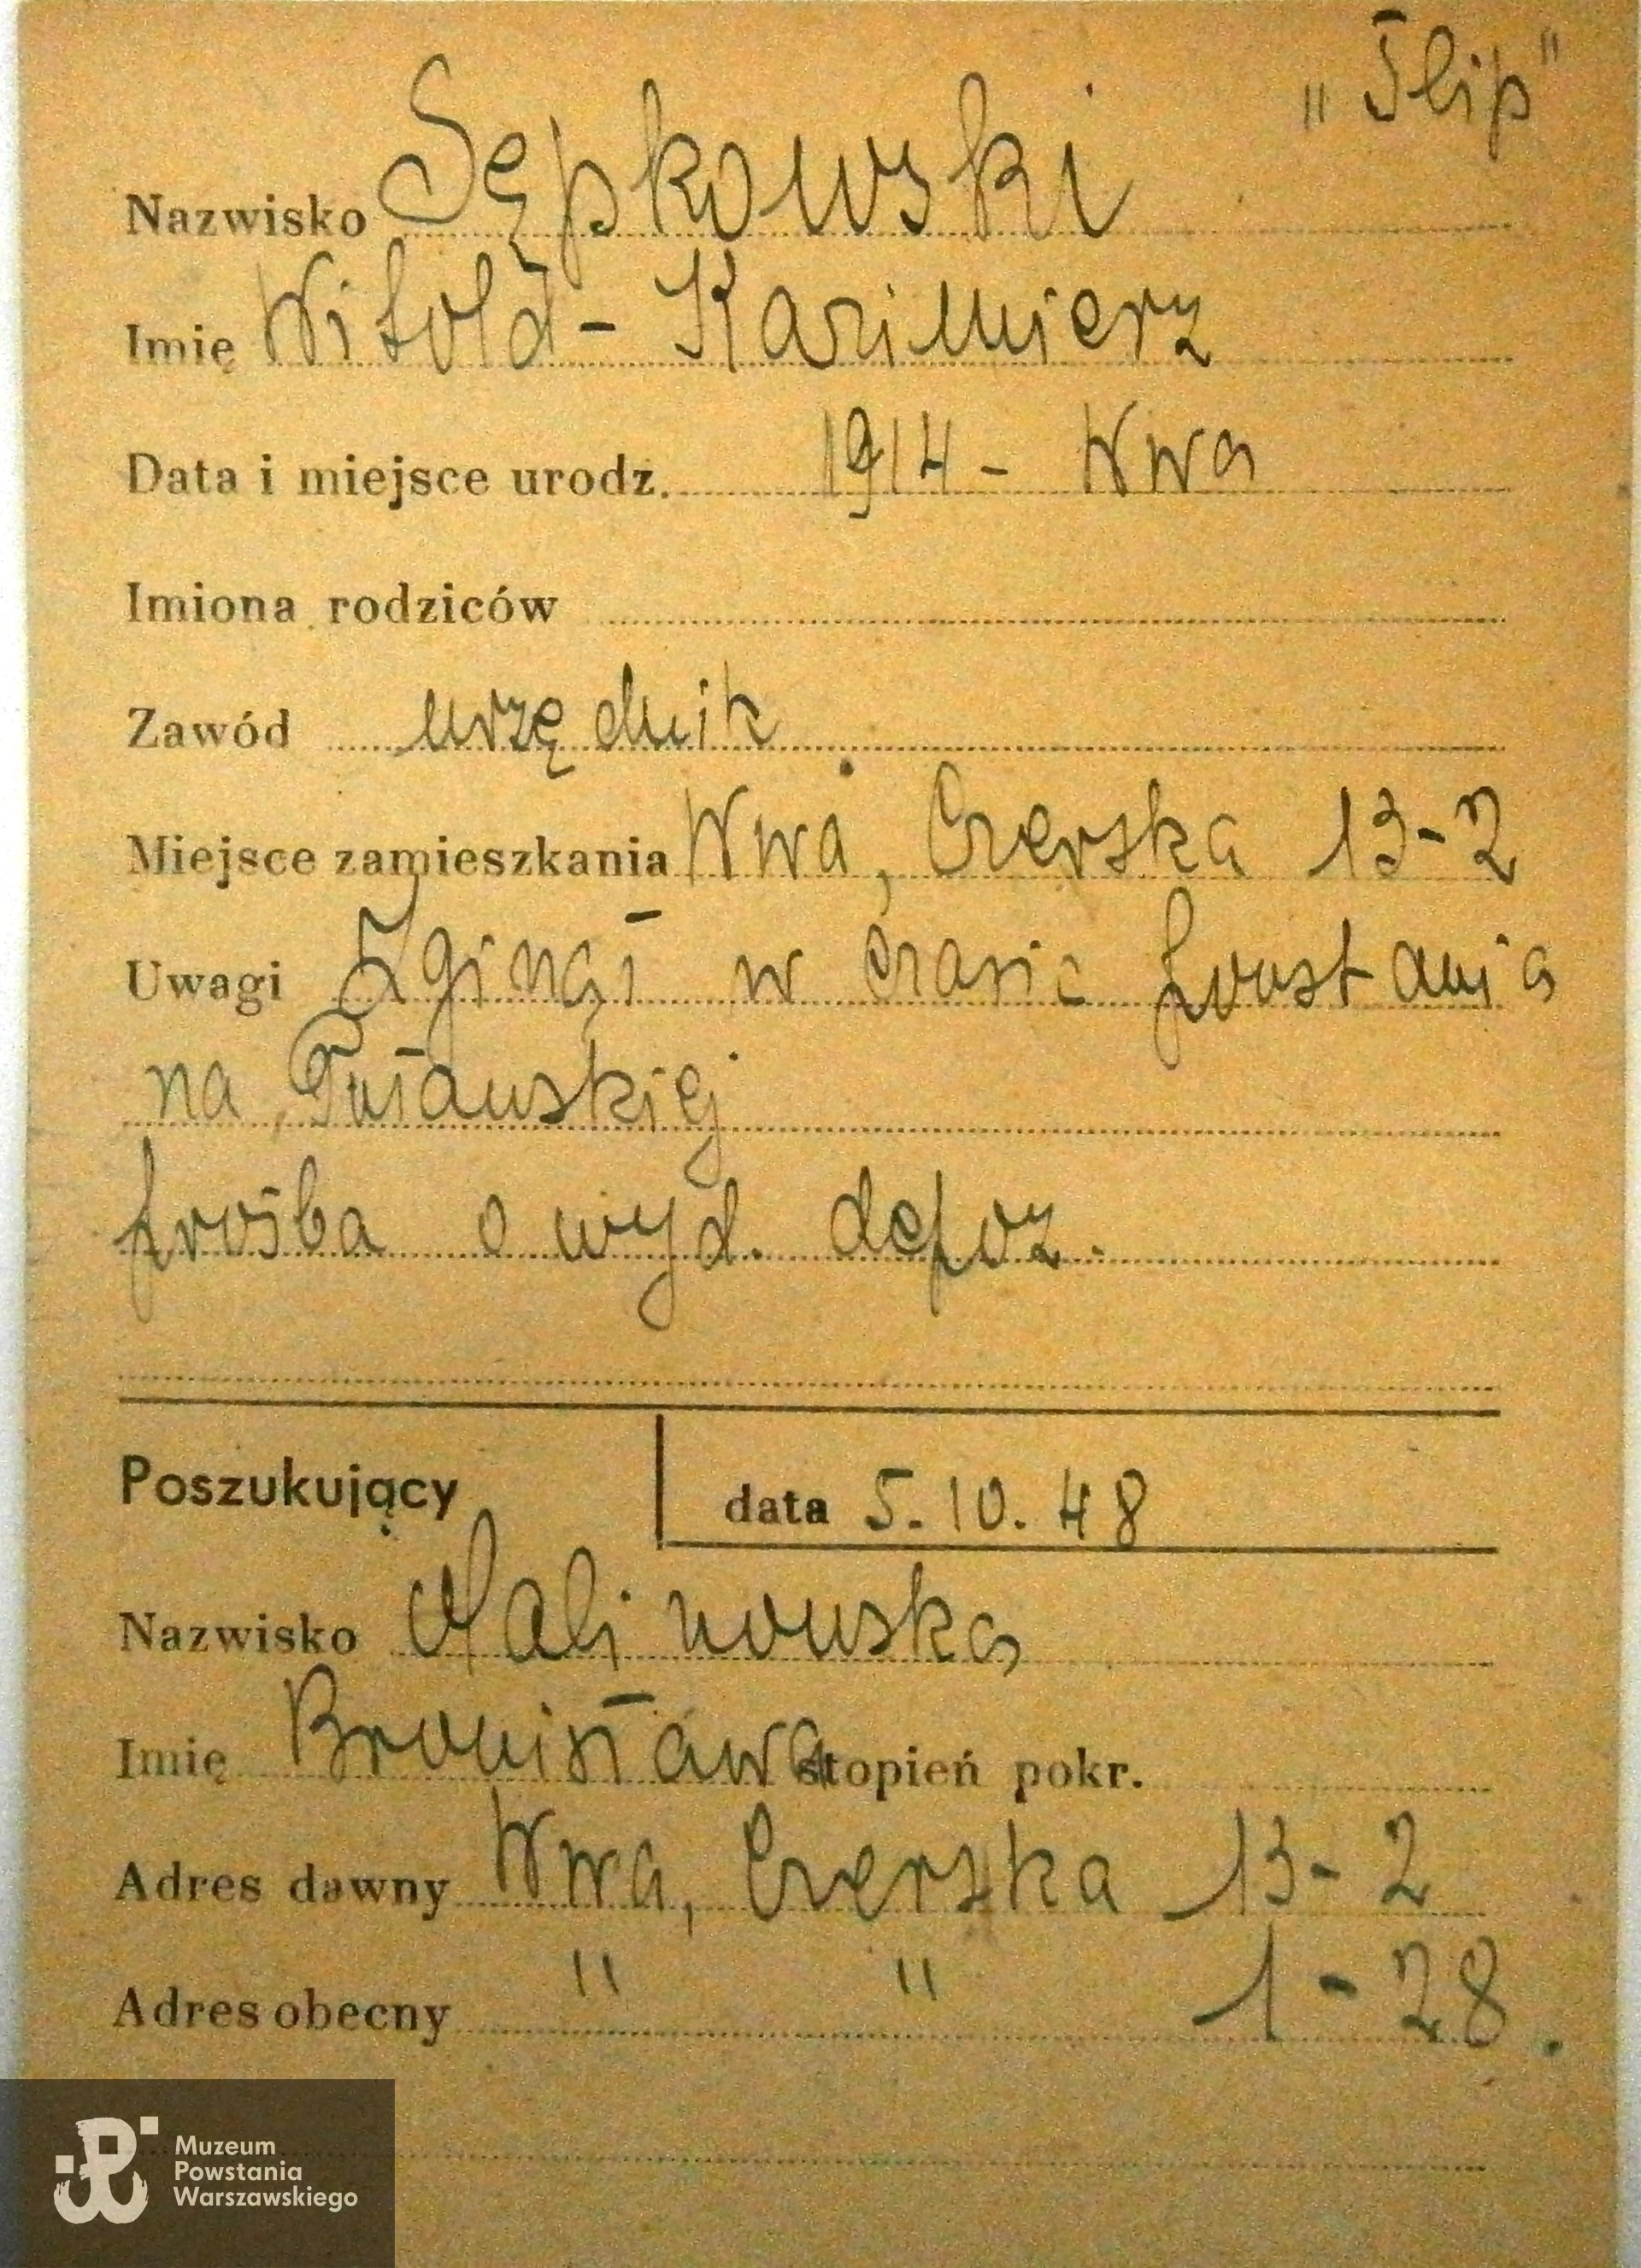 „Ślip"
Nazwisko Sępkowski
Imię Witold - Kazimierz
Data i miejsce urodz. 1914 - Wwa
Imiona rodziców
Zawód urzędnik
Miejsce zamieszkania Wwa, Czerska 13-2
Uwagi Zginął w czasie powstania
na Puławskiej
prośba o wyd. depoz.
Poszukujący
data 5.10.48
Nazwisko Malinowska
Imię Bronisława stopień pokr.
Adres dawny Wwa, Czerska 13-2
Adres obecny " " 1-28.
Muzeum
Powstania
Warszawskiego